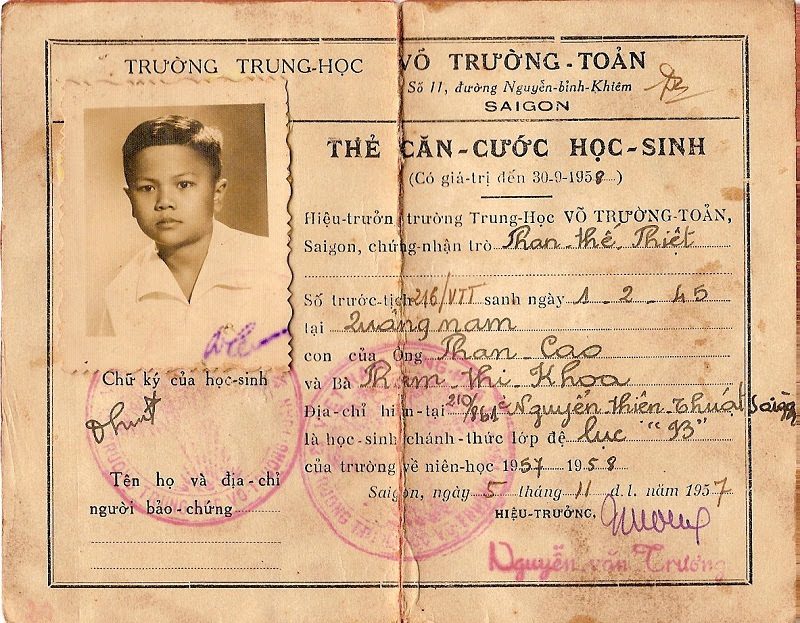 TRƯỜNG TRUNG-HỌC VÕ TRƯỜNG-TOẢN
Số 11, đường Nguyễn-bỉnh-Khiêm
SAIGON
THẺ CĂN-CƯỚC HỌC-SINH
(Có giá-trị đến 30-9-1958)
Hiệu-trưởn trường Trung-Học VÕ TRƯỜNG-TOẢN,
Saigon, chứng-nhận trò Phan-thế Thiệt
Số trước-tịch 216/VTT sanh ngày 1-2-45
tại Quảng nam
con của Ông Phan-Cao
và Bà Phạm-thi Khoa
Địa-chỉ hiện-tại 210/861c Nguyễn thiên-Thuật Saigon
là học-sinh chánh-thức lớp đệ lục "B"
của trường về niên-học 1957 1958
Saigon, ngày 5 tháng 11 d.l. năm 1957
HIỆU-TRƯỞNG,
Nguyễn văn Trương
Chữ ký của học-sinh
Tên họ và địa-chỉ
người bảo-chứng